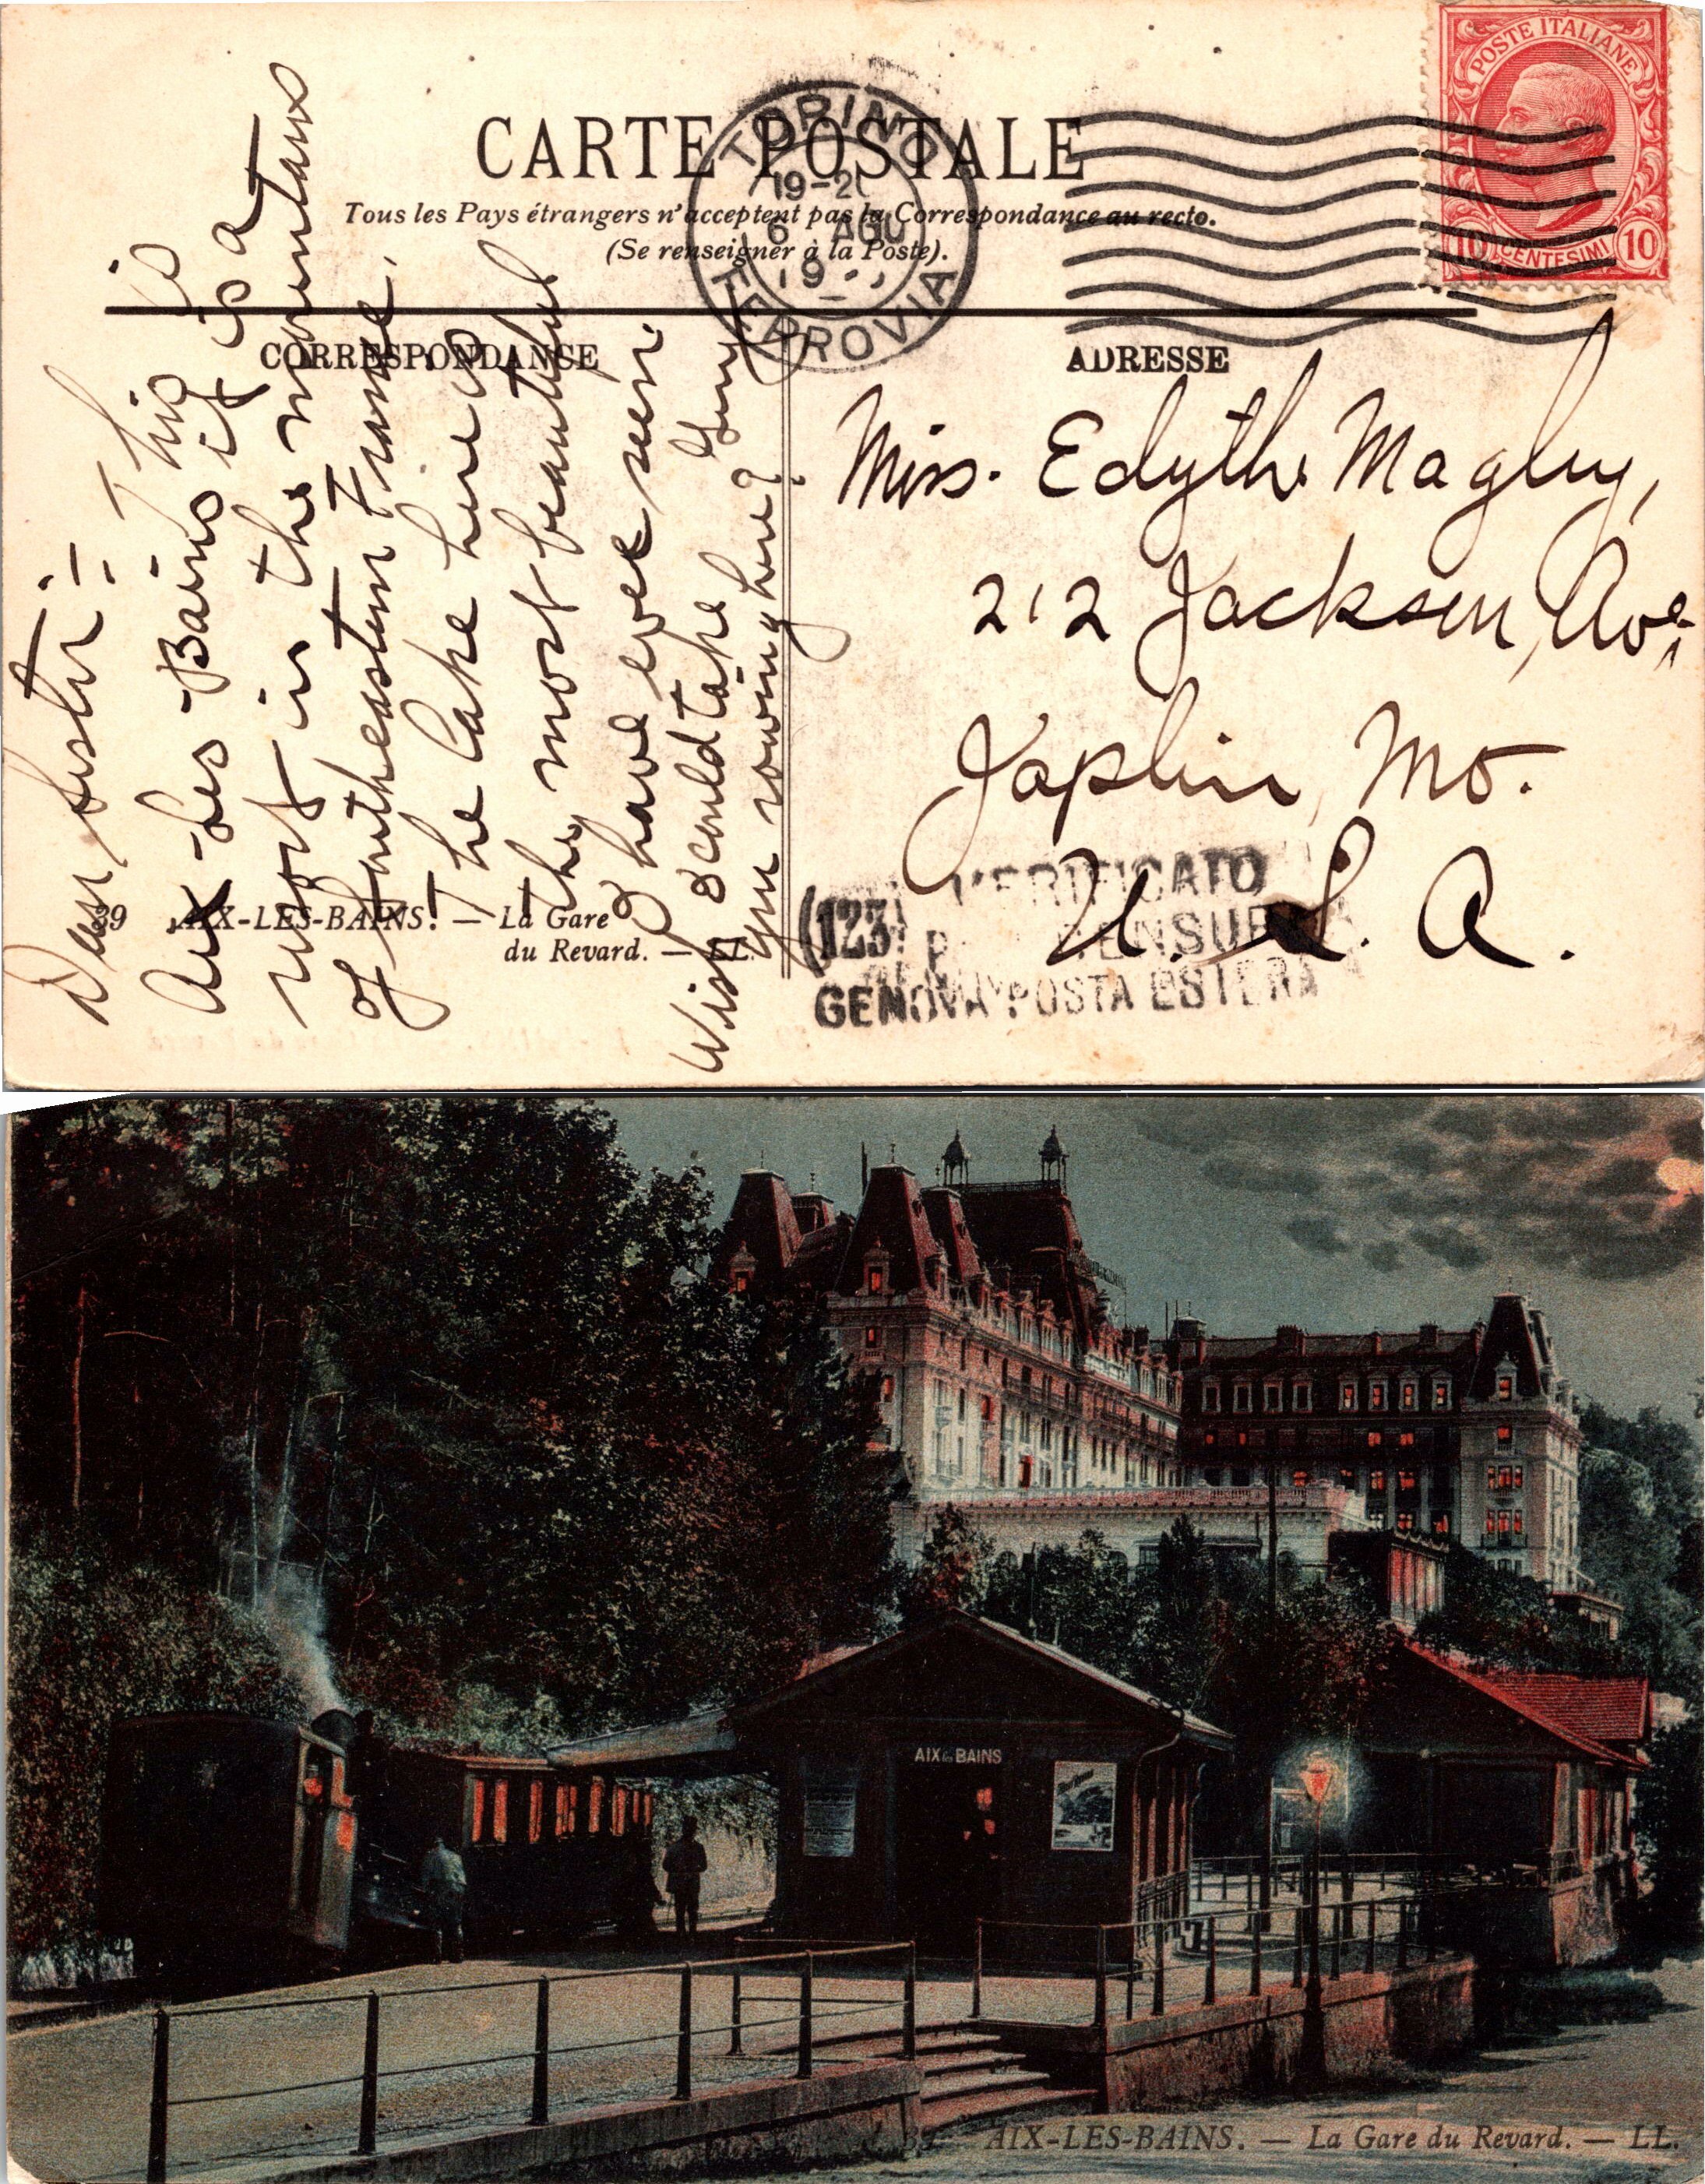 CARTE POSTALE
Tous les Pays étrangers n'acceptent pas la Correspondance au recto.
(Se renseigner à la Poste).
TORINO
19-20
6 AGO
19
FERROVIA
POSTE ITALIANE
10 CENTESIMI 10
CORRESPONDANCE
ADRESSE
Dear Sister:- This is
Aix-Les-Bains it is a
resort in the mountains
of southeastern France.
The lake here is
the most beautiful
I have ever seen.
Wish I could take
you rowing here?
Miss. Edythe Magley,
212 Jackson, Ave,
Joplin, Mo.
U. S. A.
39 AIX-LES-BAINS. — La Gare
du Revard. — LL.
(123)
VERIFICATO
PER CENSURA
GENOVA POSTA ESTERA
AIX les BAINS
39 AIX-LES-BAINS. — La Gare du Revard. — LL.